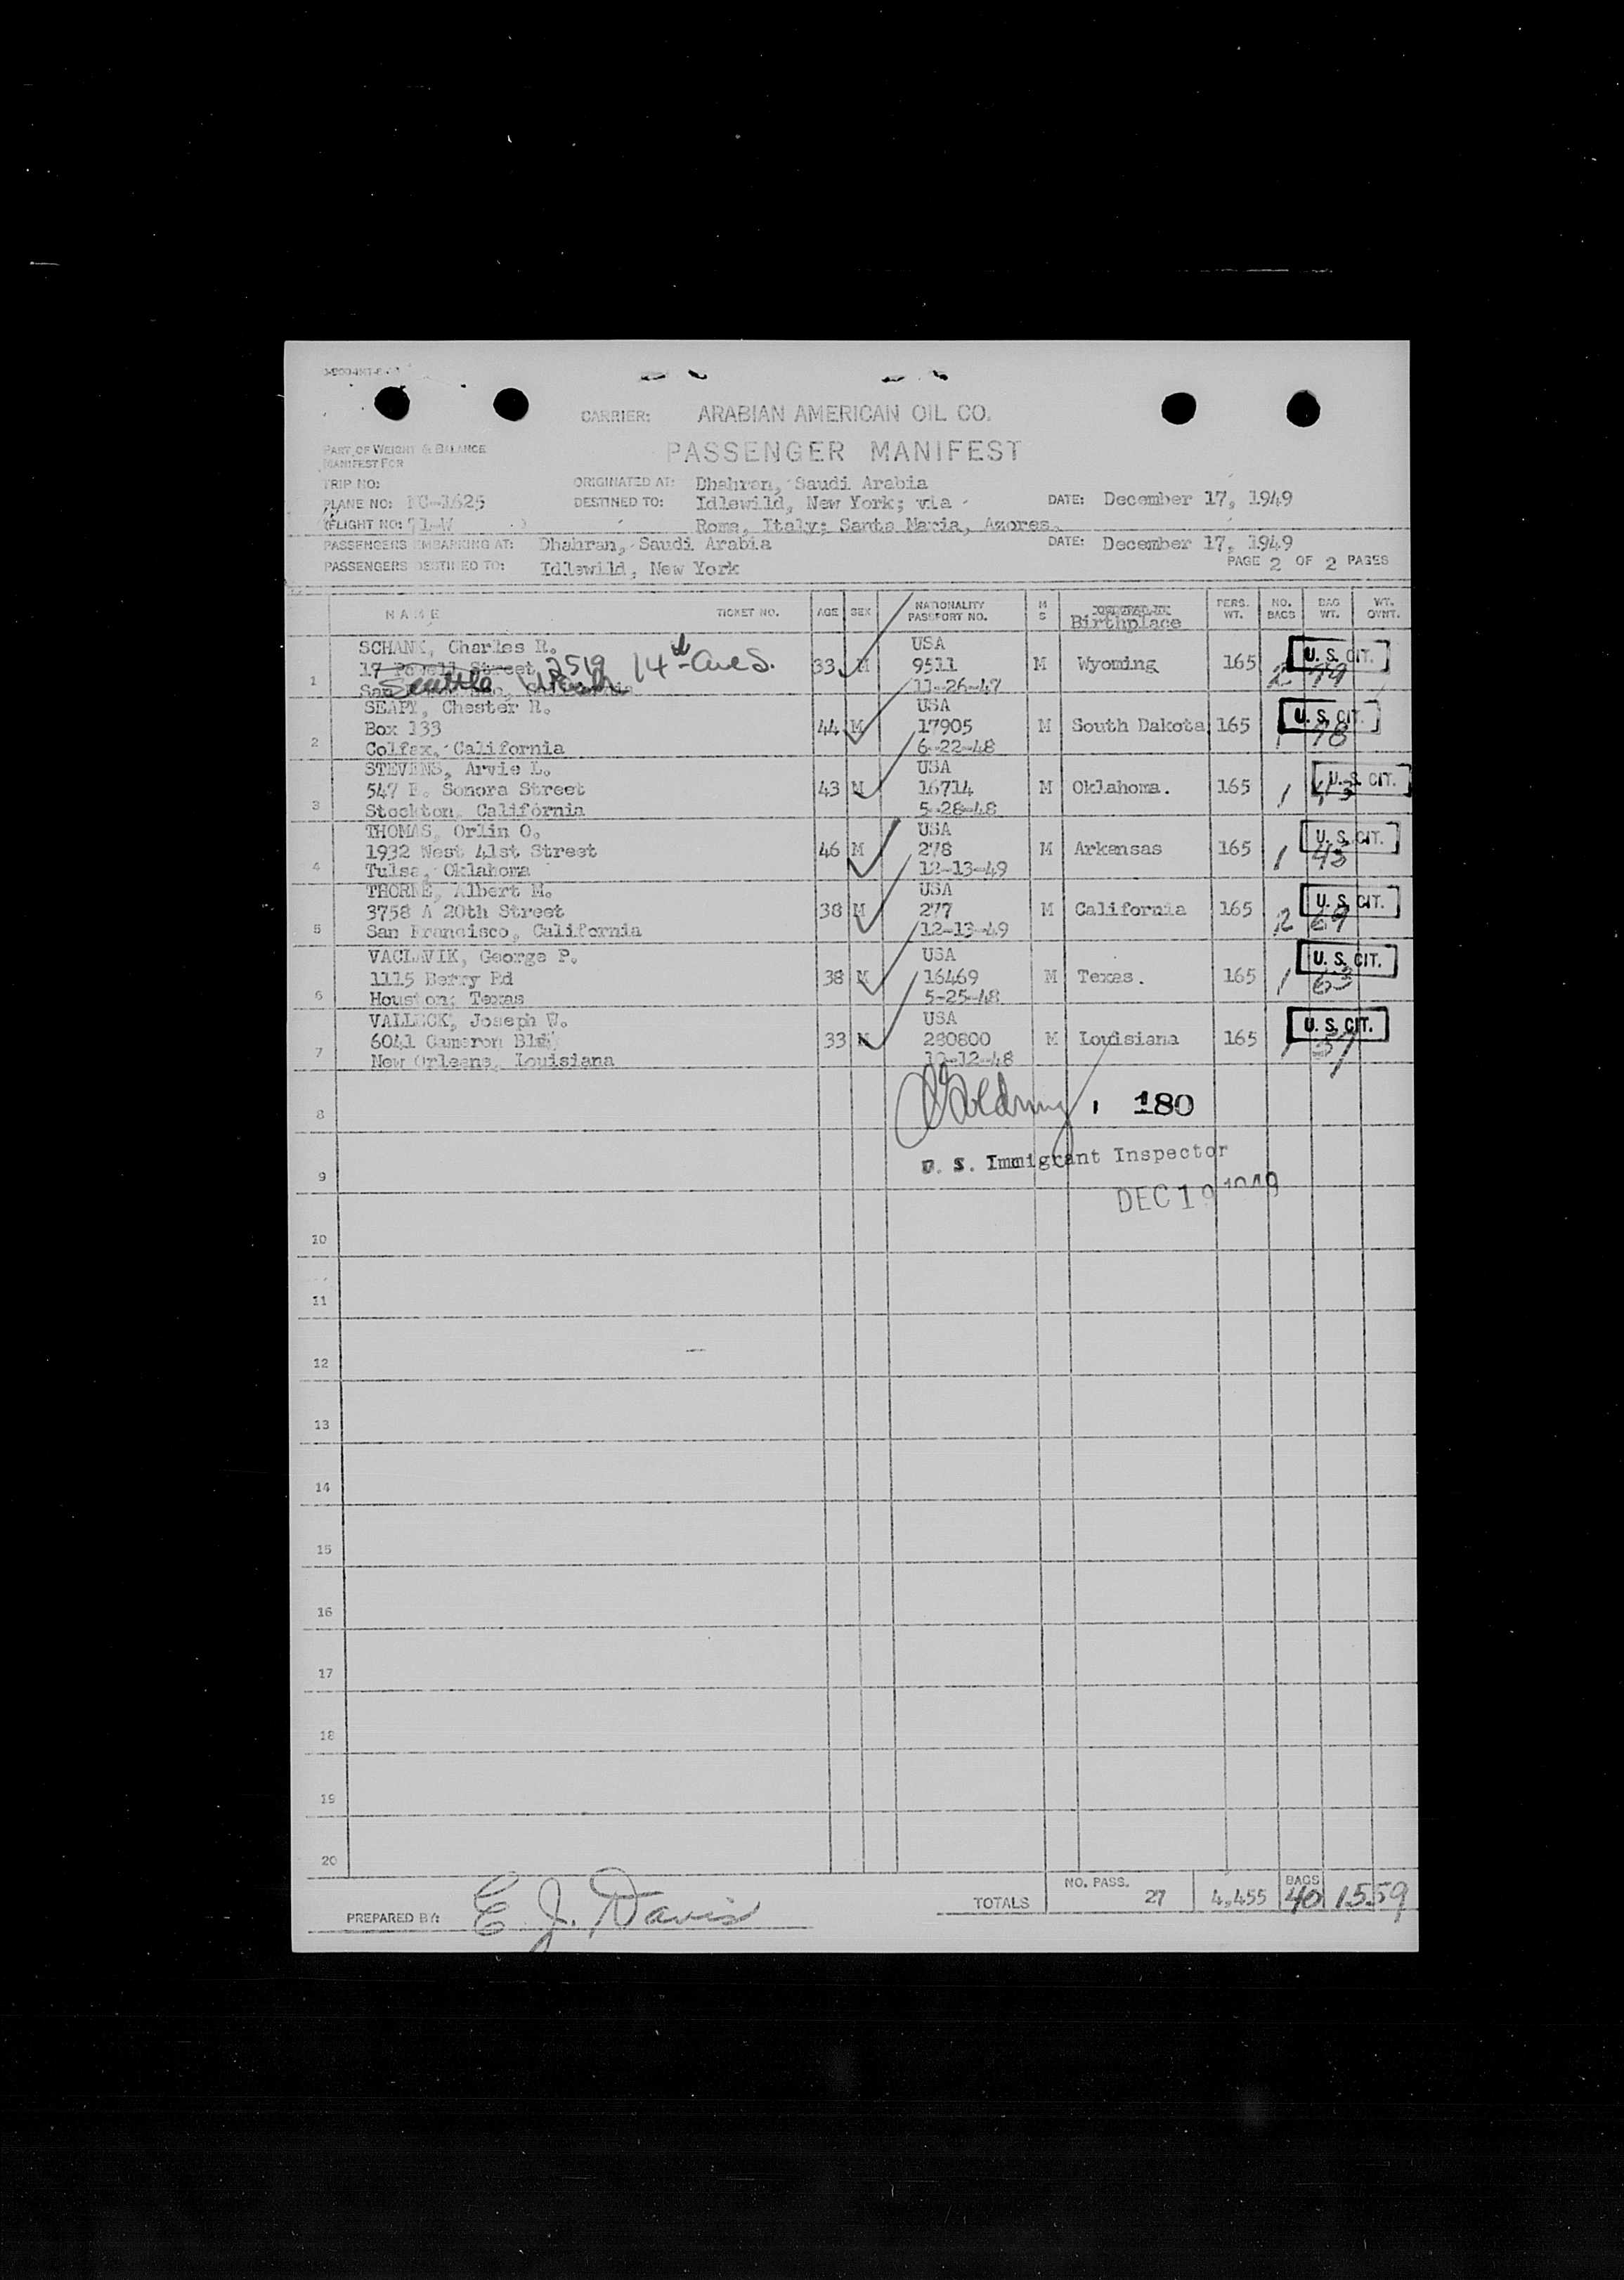 CARRIER: ARABIAN AMERICAN OIL CO.
PART OF WEIGHT & BALANCE
MANIFEST FOR
PASSENGER MANIFEST
TRIP NO: ORIGINATED AT: Dhahran, Saudi Arabia
PLANE NO: NC-1625 DESTINED TO: Idlewild, New York; via DATE: December 17, 1949
FLIGHT NO: 71-W Rome, Italy; Santa Maria, Azores.
PASSENGERS EMBARKING AT: Dhahran, Saudi Arabia DATE: December 17, 1949
PASSENGERS DESTINED TO: Idlewild, New York PAGE 2 OF 2 PAGES
NAME TICKET NO. AGE SEX NATIONALITY PASSPORT NO. M S Birthplace PERS. WT. NO. BAGS BAG WT. WT. OVWT.
SCHANK, Charles R. USA
17 Powell Street 2519 14th Ave S. 33 M 9511 M Wyoming 165 2 79 U. S. CIT.
1 San Seattle Wash 11-26-47
SEAPY, Chester R. USA
Box 133 44 M 17905 M South Dakota 165 1 78 U. S. CIT.
2 Colfax, California 6-22-48
STEVENS, Arvie L. USA
547 E. Sonora Street 43 M 16714 M Oklahoma. 165 1 43 U. S. CIT.
3 Stockton, California 5-28-48
THOMAS, Orlin O. USA
1932 West 41st Street 46 M 278 M Arkansas 165 1 45 U. S. CIT.
4 Tulsa, Oklahoma 12-13-49
THORNE, Albert M. USA
3758 A 20th Street 38 M 277 M California 165 2 69 U. S. CIT.
5 San Francisco, California 12-13-49
VACLAVIK, George P. USA
1115 Berry Rd 38 M 16469 M Texas. 165 1 63 U. S. CIT.
6 Houston; Texas 5-25-48
VALLECK, Joseph W. USA
6041 Cameron Blvd 33 M 280800 M Louisiana 165 1 37 U. S. CIT.
7 New Orleans, Louisiana 10-12-48
8 180
U. S. Immigrant Inspector
9
DEC 19 1949
10
11
12
13
14
15
16
17
18
19
20
PREPARED BY: E. J. Davis TOTALS NO. PASS. 27 4,455 BAGS 40 1559